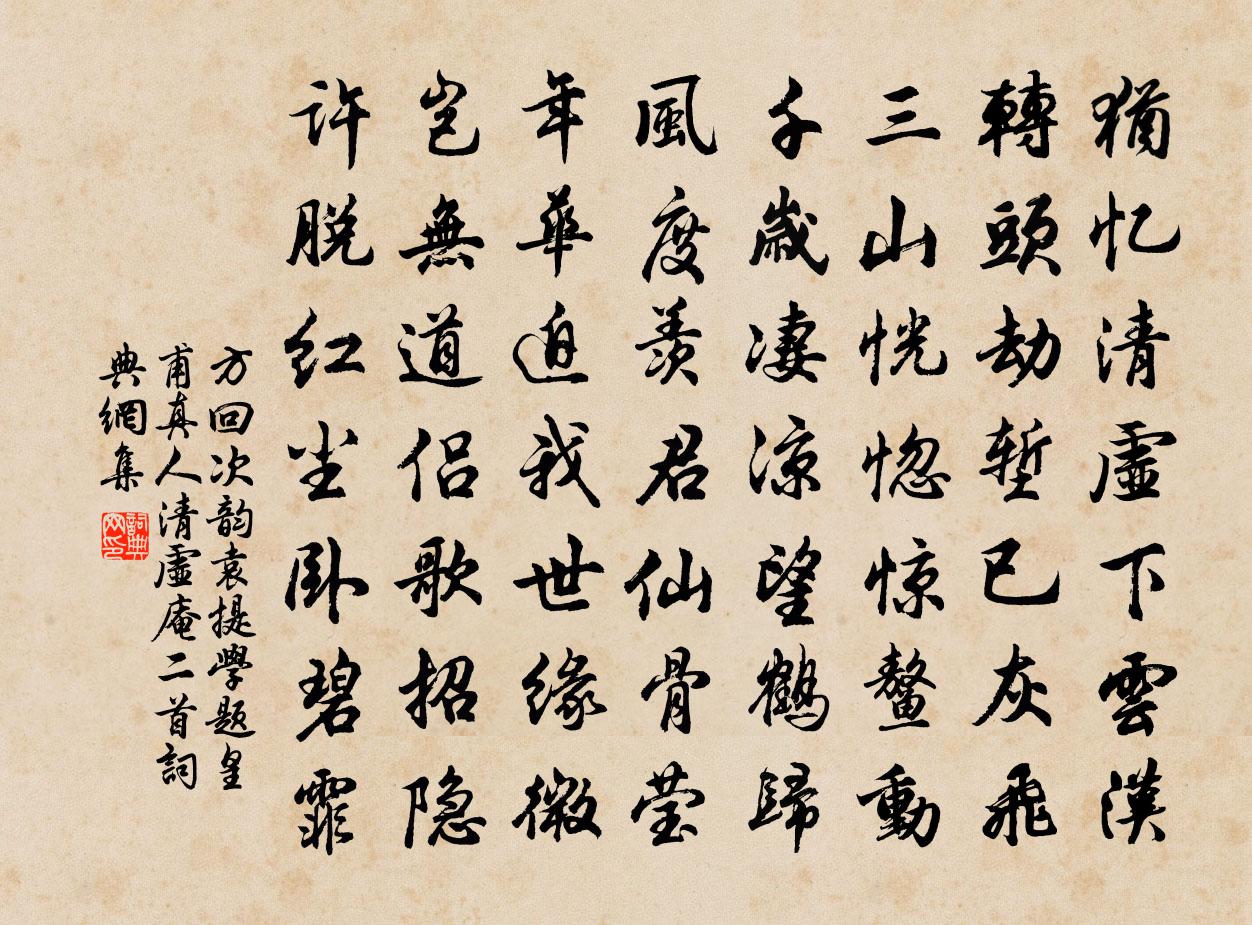 猶忆清虛下雲漢
轉頭劫塹已灰飛
三山恍惚惊鰲動
千歲凄涼望鶴歸
風度羨君仙骨莹
年華迫我世緣微
岂無道侣歌招隐
许脱红尘卧碧霏
方回次韵袁提學题皇
甫真人清虛庵二首詞
典網集
詞典网印